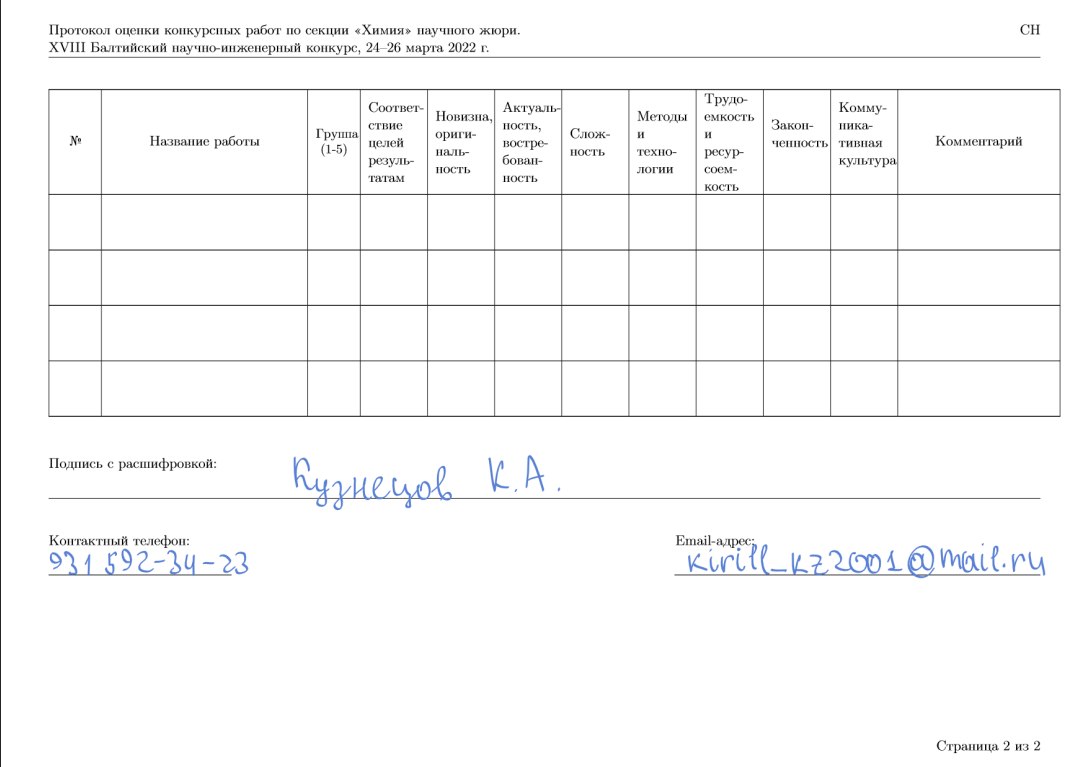 Протокол оценки конкурсных работ по секции «Химия» научного жюри.
CH
XVIII Балтийский научно-инженерный конкурс, 24–26 марта 2022 г.
№
Название работы
Группа
(1-5)
Соответ-
ствие
целей
резуль-
татам
Новизна,
ориги-
наль-
ность
Актуаль-
ность,
востре-
бован-
ность
Слож-
ность
Методы
и
техно-
логии
Трудо-
емкость
и
ресур-
соем-
кость
Закон-
ченность
Комму-
ника-
тивная
культура
Комментарий
Подпись с расшифровкой:
Кузнецов К.А.
Контактный телефон:
931 592-34-23
Email-адрес:
kirill_kz2001@mail.ru
Страница 2 из 2